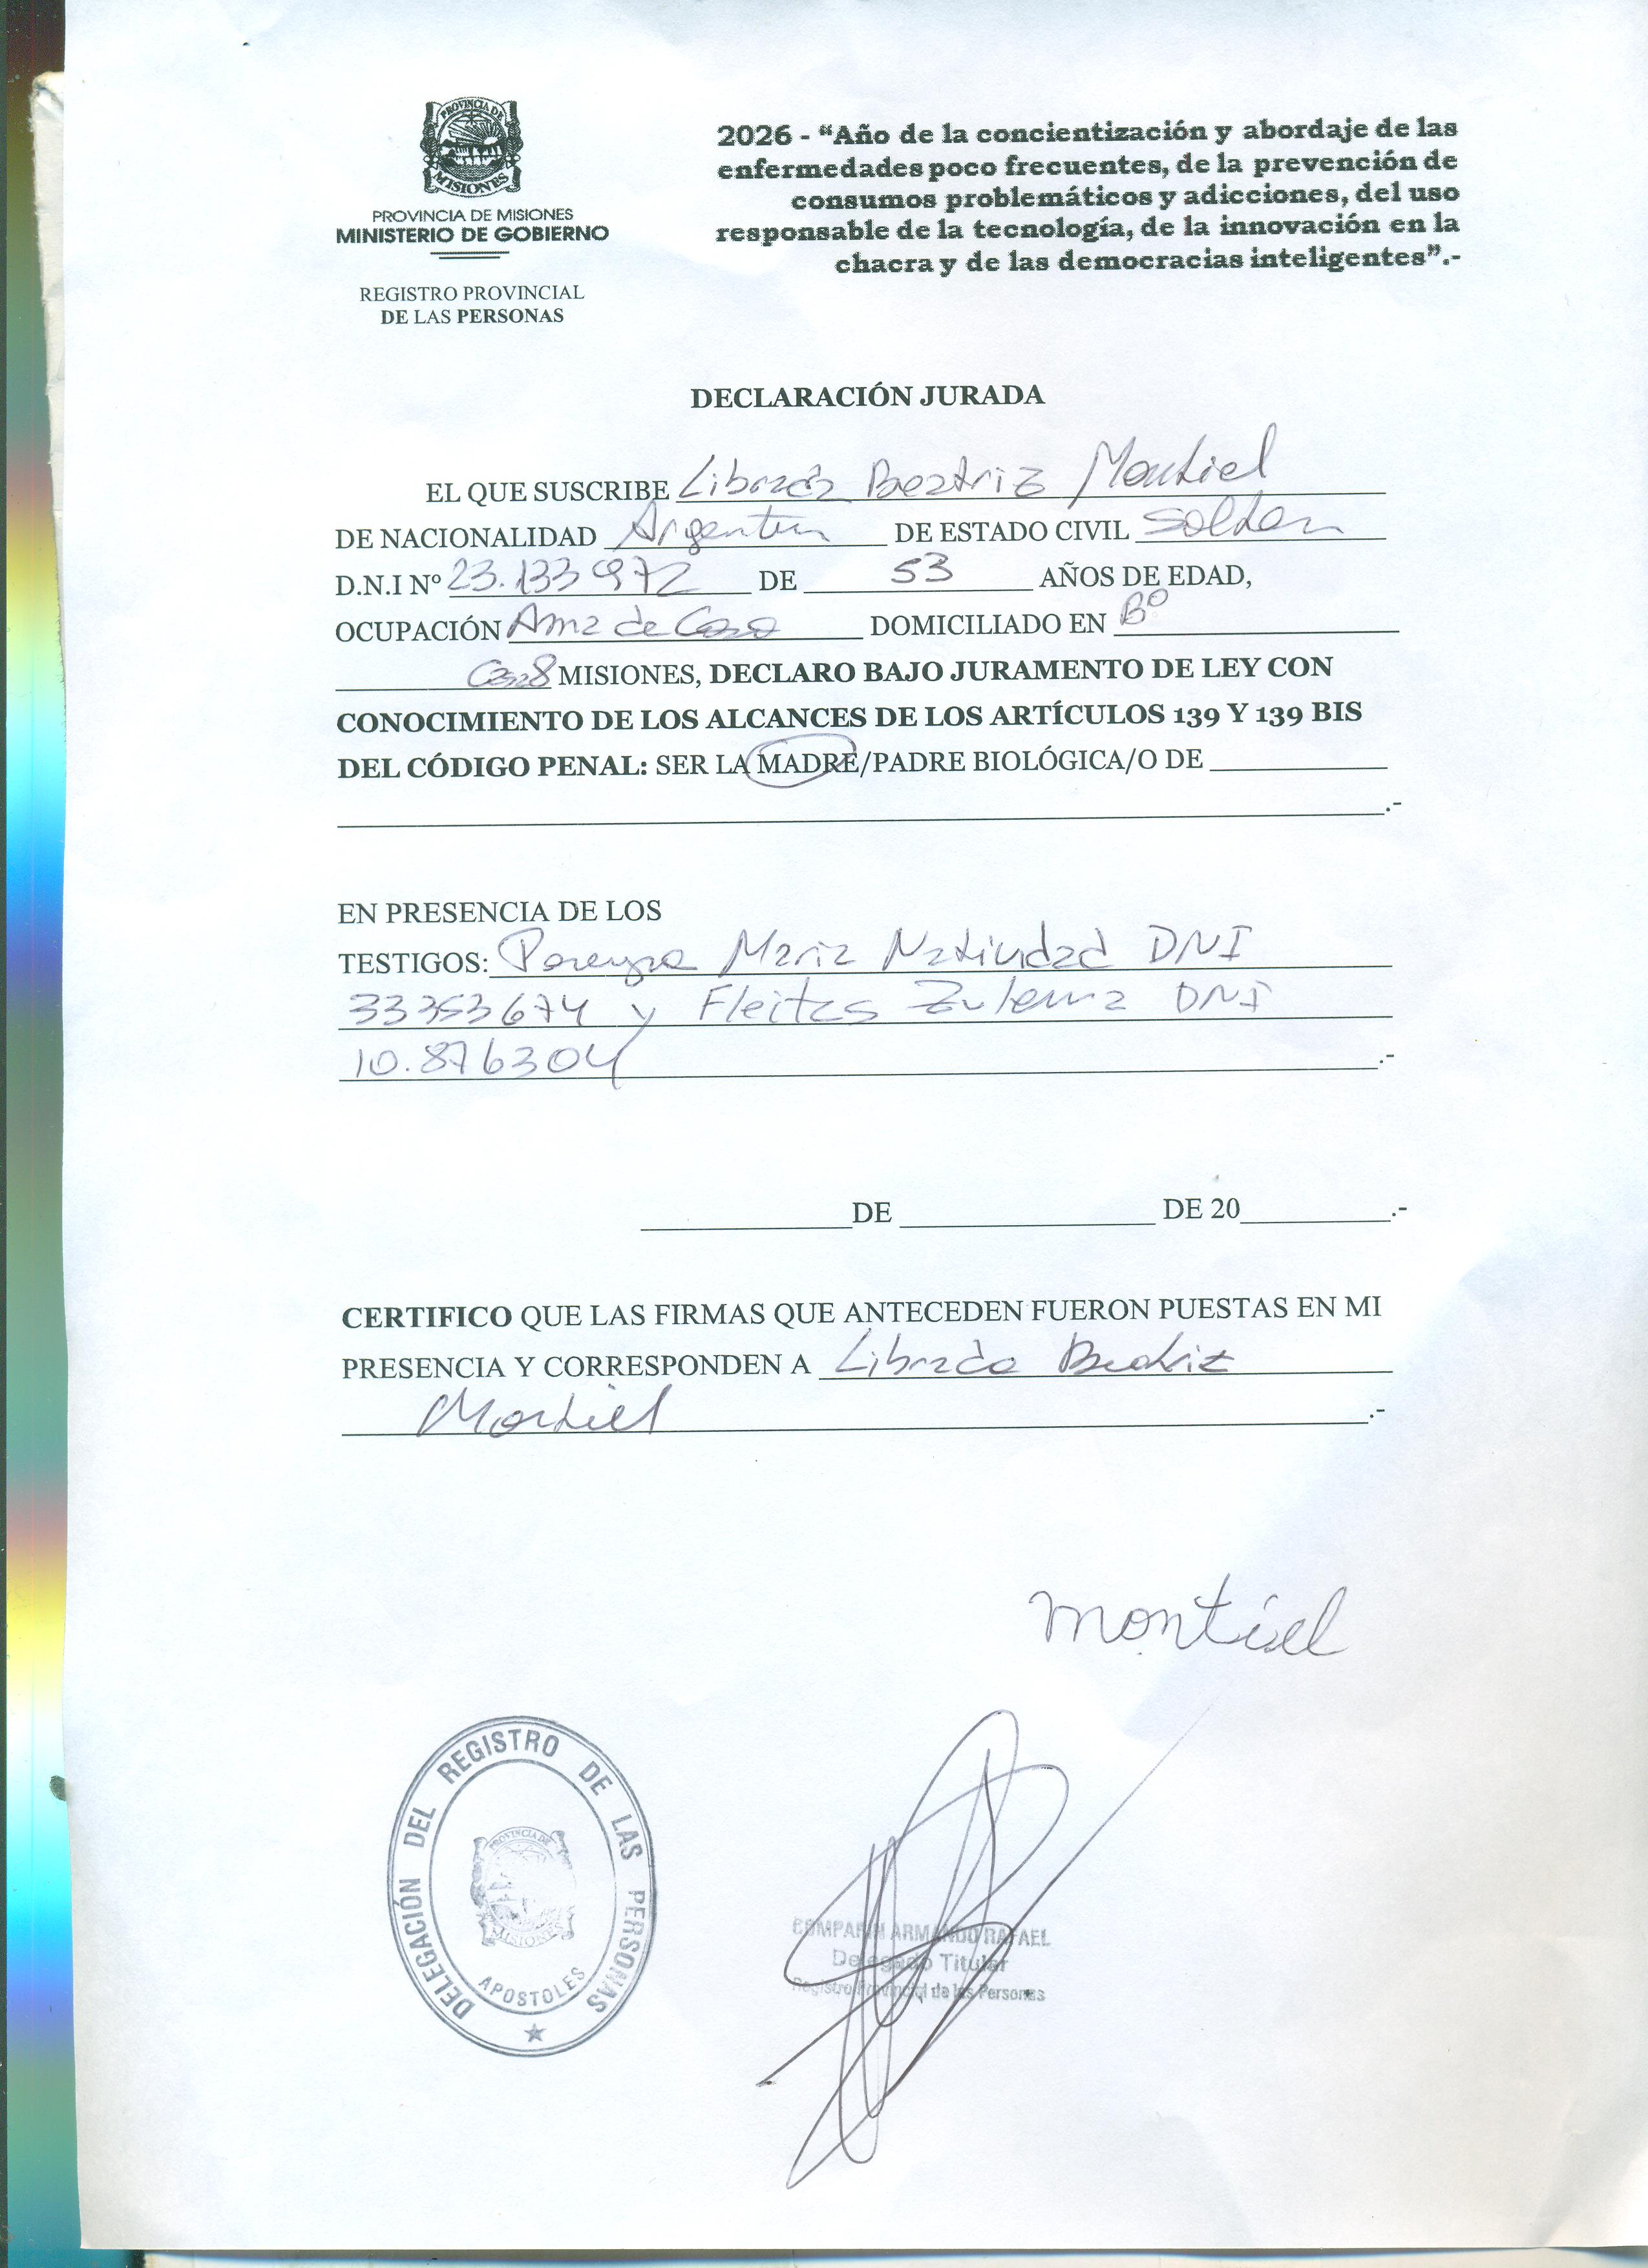 PROVINCIA DE
MISIONES
PROVINCIA DE MISIONES
MINISTERIO DE GOBIERNO
REGISTRO PROVINCIAL
DE LAS PERSONAS
2026 - “Año de la concientización y abordaje de las
enfermedades poco frecuentes, de la prevención de
consumos problemáticos y adicciones, del uso
responsable de la tecnología, de la innovación en la
chacra y de las democracias inteligentes”.-
DECLARACIÓN JURADA
EL QUE SUSCRIBE Librada Beatriz Montiel
DE NACIONALIDAD Argentina DE ESTADO CIVIL Soltera
D.N.I Nº 23.133972 DE 53 AÑOS DE EDAD,
OCUPACIÓN Ama de Casa DOMICILIADO EN Bº
MISIONES, DECLARO BAJO JURAMENTO DE LEY CON
CONOCIMIENTO DE LOS ALCANCES DE LOS ARTÍCULOS 139 Y 139 BIS
DEL CÓDIGO PENAL: SER LA MADRE/PADRE BIOLÓGICA/O DE
.-
EN PRESENCIA DE LOS
TESTIGOS: Pereyra Maria Natividad DNI
33353674 y Fleitas Zulema DNI
10.876304 .-
DE DE 20 .-
CERTIFICO QUE LAS FIRMAS QUE ANTECEDEN FUERON PUESTAS EN MI
PRESENCIA Y CORRESPONDEN A Librada Beatriz
Montiel .-
montiel
DELEGACIÓN DEL REGISTRO DE LAS PERSONAS
PROVINCIA DE
MISIONES
APOSTOLES
ARMANDO RAFAEL
Delegado Titular
Registro Provincial de las Personas